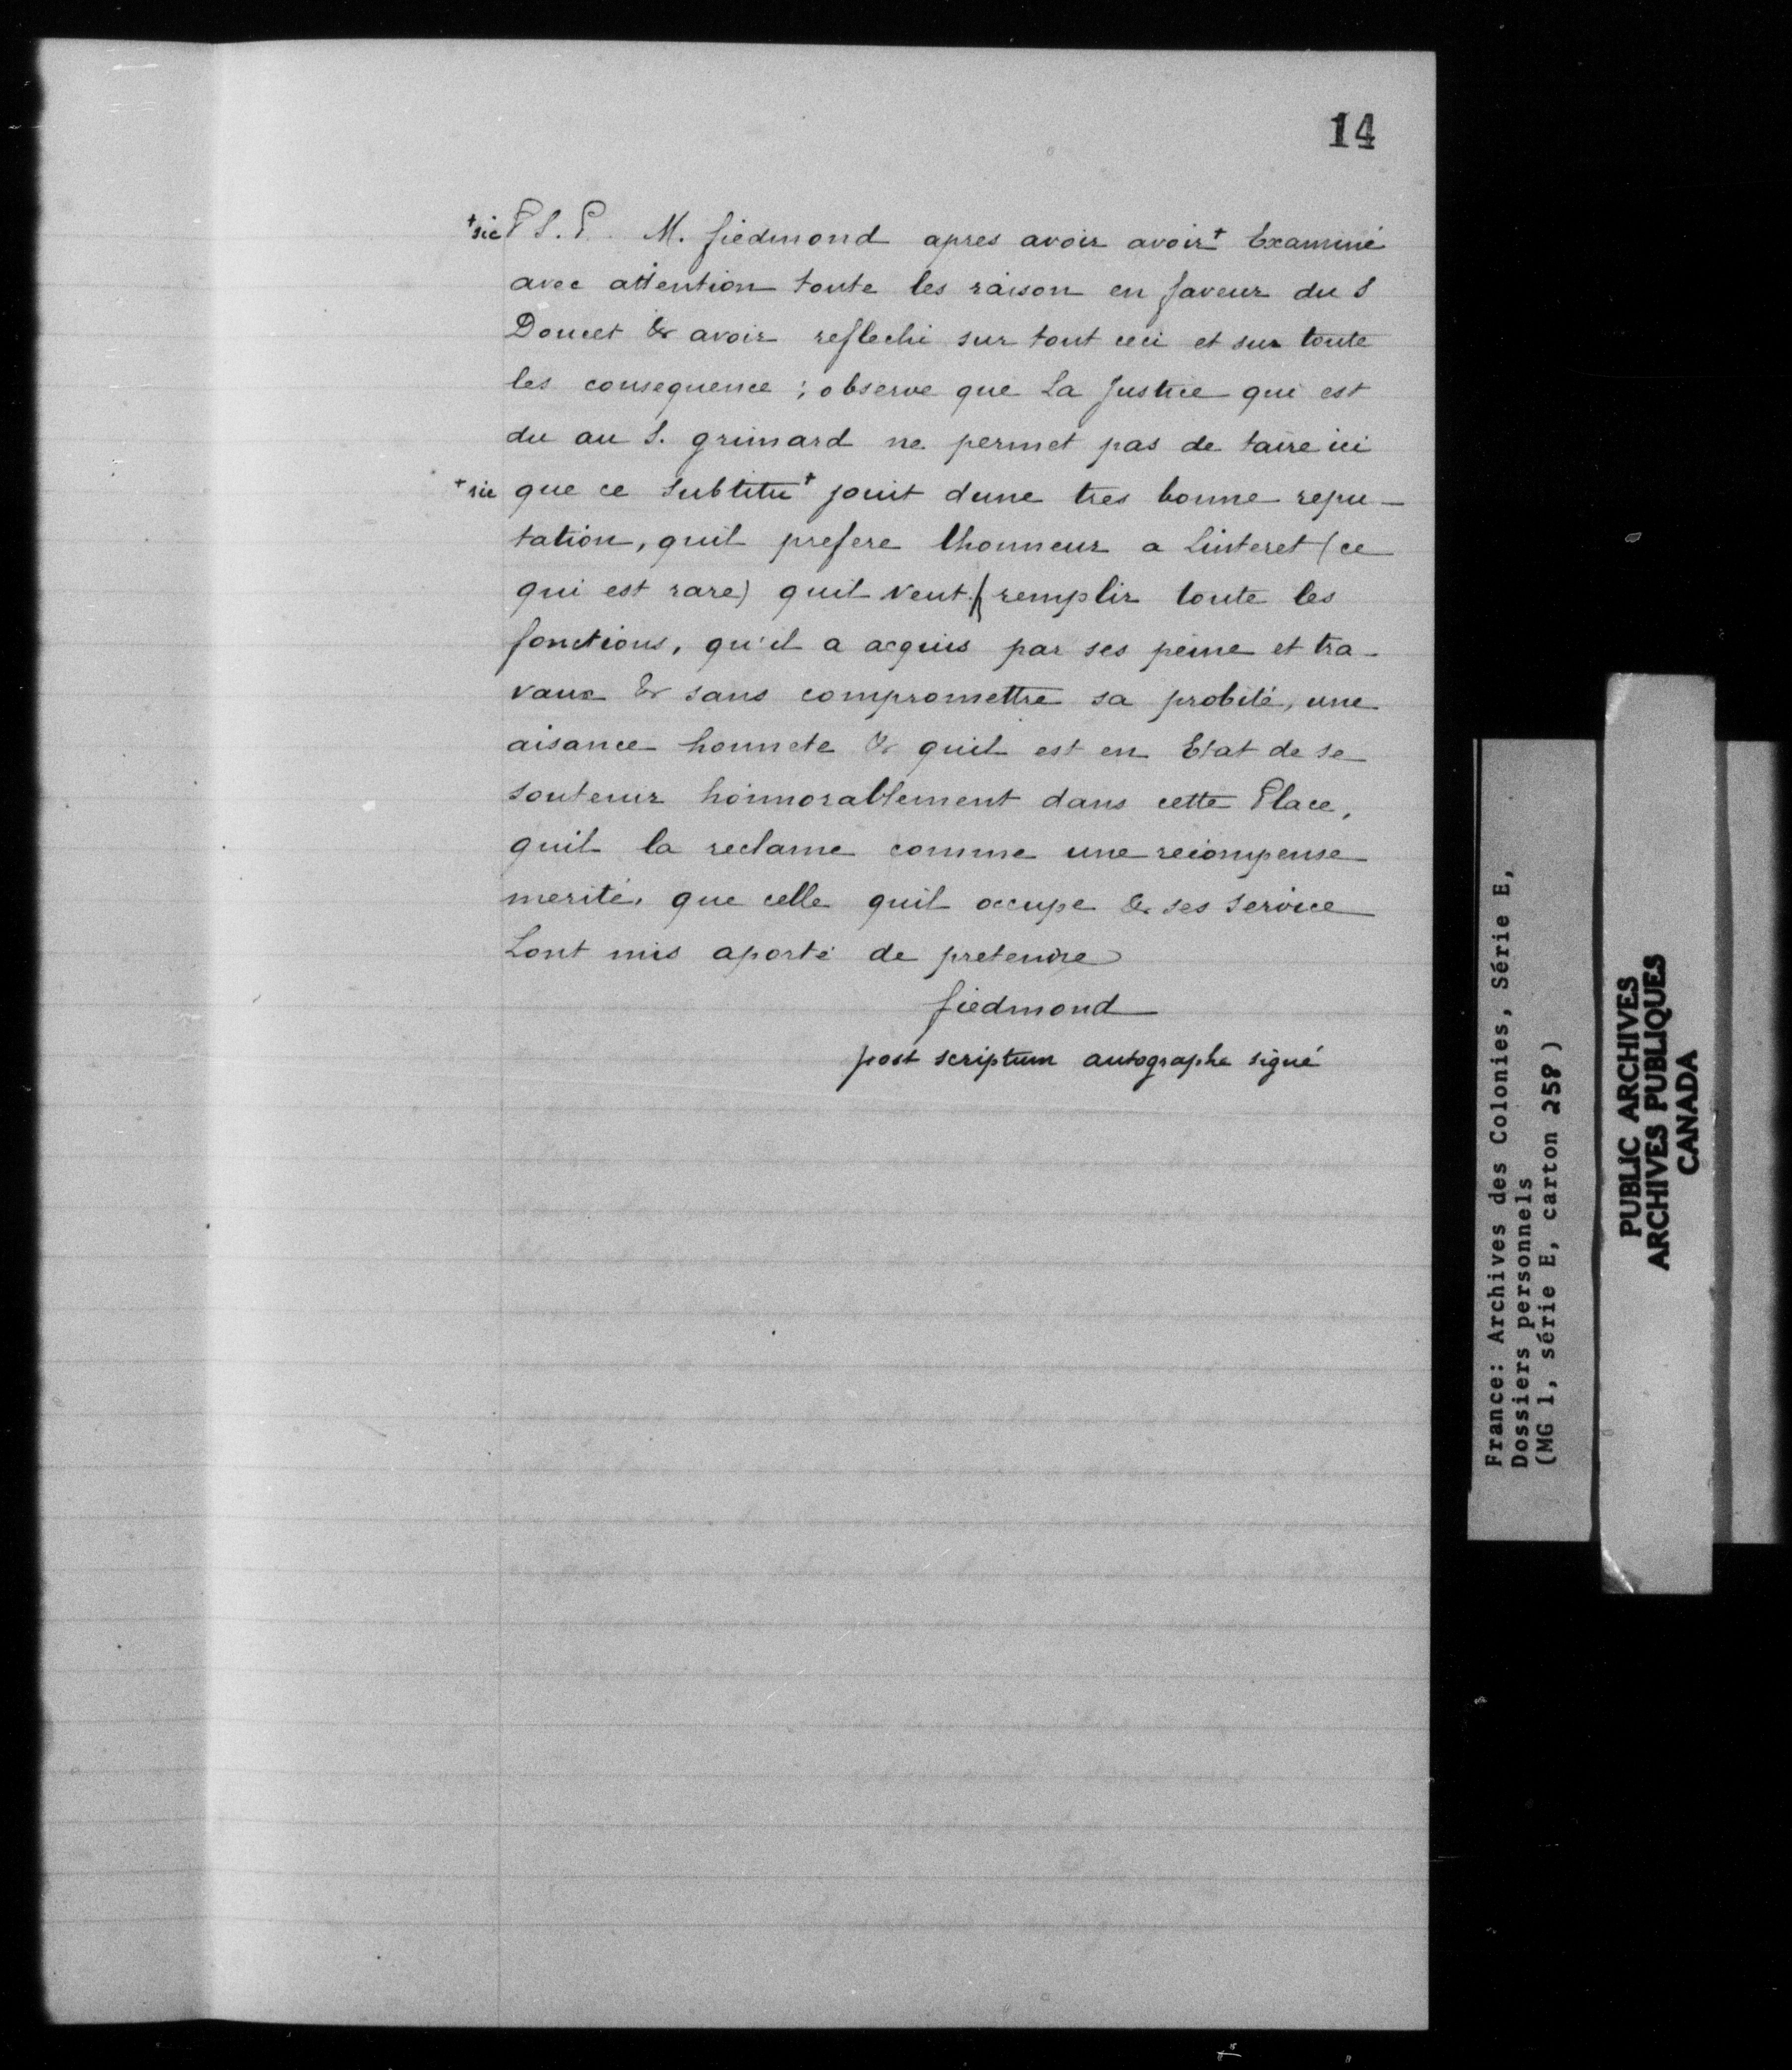 14
+sic P S. P. M. fiedmond apres avoir avoir+ Examiné
avec attention toute les raison en faveur du S
Doucet & avoir reflechi sur tout ceci et sur toute
les consequence ; observe que La Justice qui est
du au S. grimard ne permet pas de taire ici
+sic que ce subtitu+ jouit dune tres bonne repu-
tation, quil prefere lhonneur a Linteret (ce
qui est rare) quil veut remplir toute les
fonctions, qu'il a acquis par ses peine et tra-
vaux & sans compromettre sa probité, une
aisance honnete & quil est en Etat de se
soutenir honnorablement dans cette Place,
quil la reclame comme une recompense
merité, que celle quil occupe & ses service
Lont mis aporté de pretendre
fiedmond
post scriptum autographe signé
France: Archives des Colonies, Série E,
Dossiers personnels
(MG 1, série E, carton 258)
PUBLIC ARCHIVES
ARCHIVES PUBLIQUES
CANADA